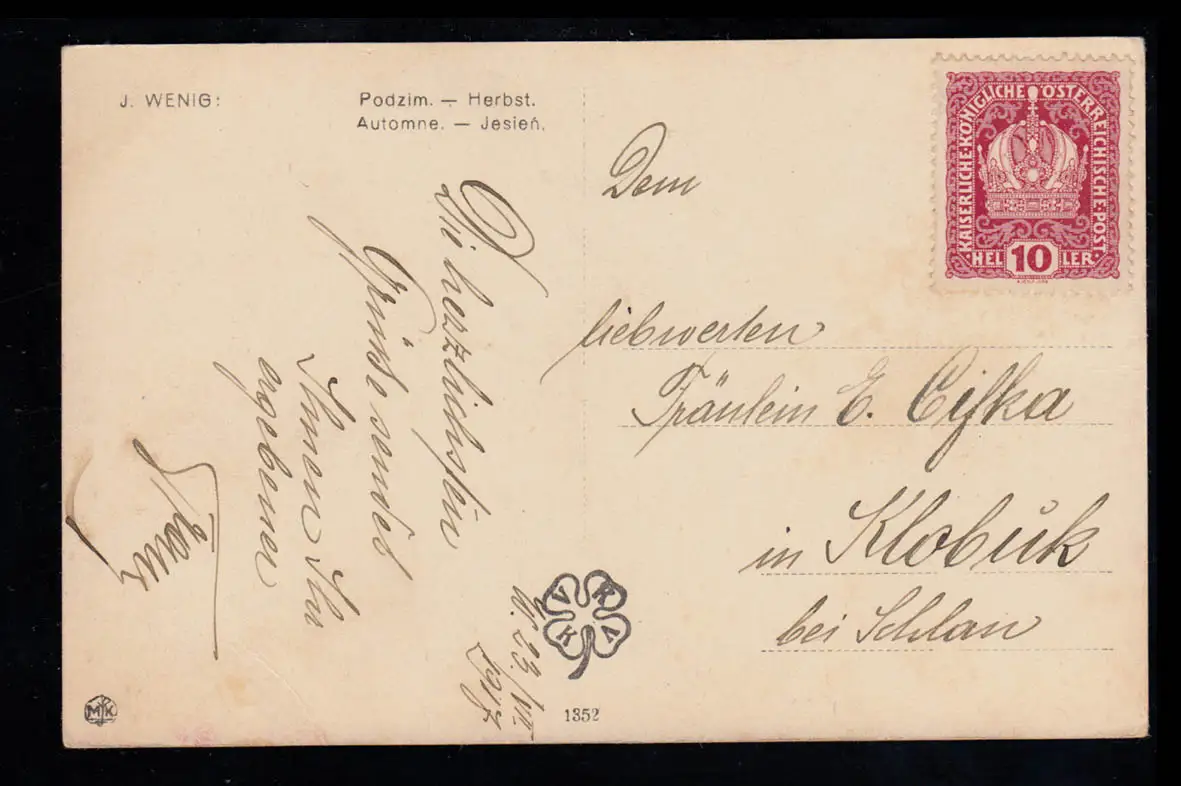 J. WENIG:
Podzim. — Herbst.
Automne. — Jesień.
KAISERLICHE·KÖNIGLICHE ÖSTERREICHISCHE·POST
HEL 10 LER
Dem
liebwerten
Fräulein E. Cifka
in Klobuk
bei Schlan
Die herzlichsten
Grüsse sendet
Ihnen Ihr
ergebener
23/VII
1917
V K R V
MK
1352